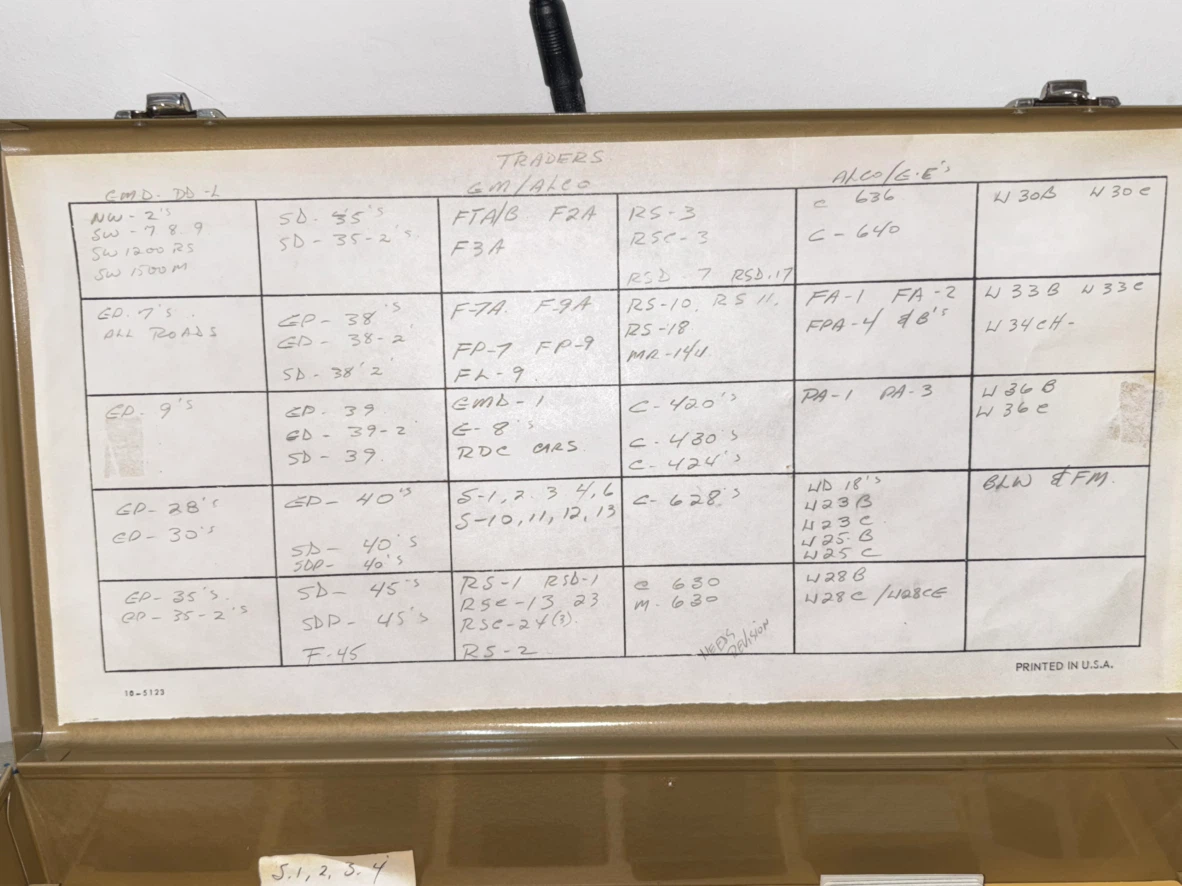 TRADERS
GMD. DD-L
GM/ALCO
ALCO/G.E's
NW-2's
SW-7 8.9
SW 1200 RS
SW 1500 M
SD-35's
SD-35-2's.
FTA/B F2A
F3A
RS-3
RSC-3
RSD 7 RSD.17
C 636
C-640
U 30B U 30C
GP. 7's.
ALL ROADS
GP-38's
GP-38-2
SD-38'2
F-7A. F-9A
FP-7 FP-9
FL-9.
RS-10. RS 11.
RS-18
MR-144.
FA-1 FA-2
FPA-4 & B's
U 33B U 33C
U 34CH-
GP. 9's
GP. 39
GP-39-2
SD-39.
GMD-1
E-8's
RDC CARS.
C-420's
C-430's
C-424's
PA-1 PA-3
U 36B
U 36C
GP-28's
GP-30's
GP-40's
SD-40's
SDP-40's
S-1, 2. 3 4, 6
S-10, 11, 12, 13
C-628's
UD 18's
U23B
U23C
U25.B
U25C
BLW & FM.
GP-35's.
GP-35-2's
SD-45's
SDP-45's
F-45
RS-1 RSD-1
RSC-13 23
RSC-24(3).
RS-2
C 630
M. 630
NEEDS
DEVISION
U28B
U28C/U28CE
10-5123
PRINTED IN U.S.A.
S.1, 2, 3. 4